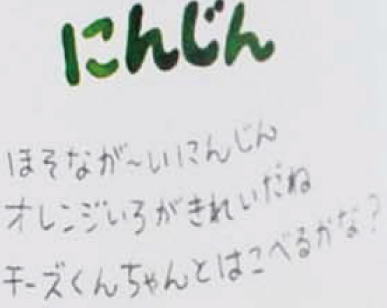 にんじん
ほそなが～いにんじん
オレンジいろがきれいだね
チーズくんちゃんとはこべるかな?